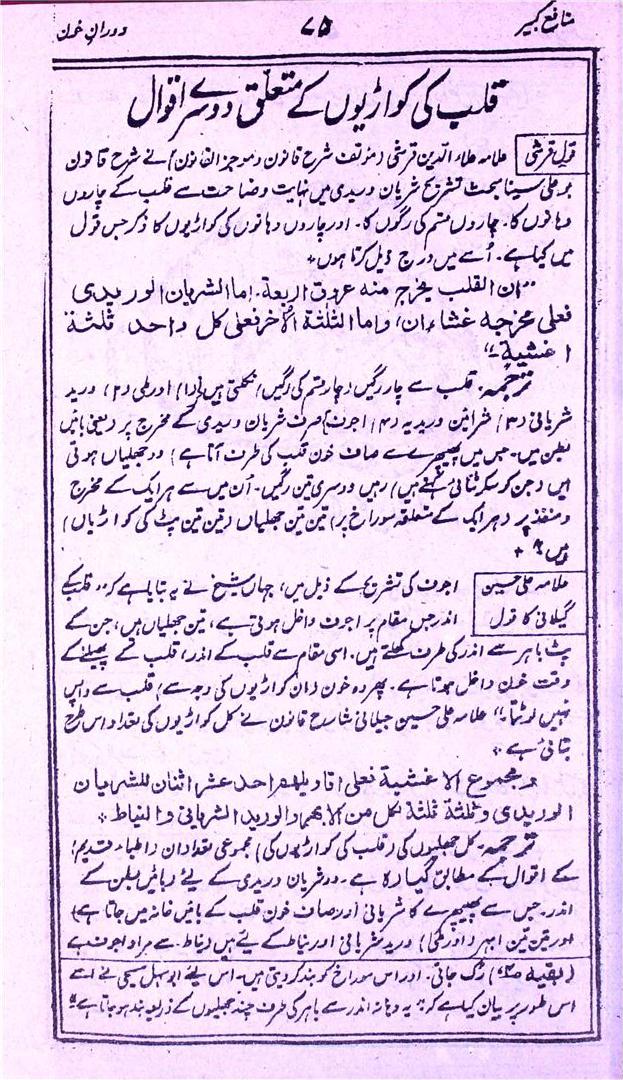 منافع کبیر
۷۵
دورانِ خون
قلب کی کواڑیوں کے متعلق دوسرے اقوال
قولِ قرشی
علامہ علاء الدین قرشی (مؤلف شرح قانون و موجز القانون) نے شرح قانون
بو علی سینا مبحث تشریح شریان وریدی میں نہایت وضاحت سے قلب کے چاروں
دہانوں کا۔ چاروں قسم کی رگوں کا۔ اور چاروں دہانوں کی کواڑیوں کا ذکر جس قول
میں کیا ہے۔ اُسے میں درج ذیل کرتا ہوں
"ان القلب یخرج منه عروق اربعة۔ اما الشریان الوریدی
فعلی مخرجه غشاءان، واما الثلثة الأخر فعلی کل واحد ثلثة
اغشیة۔"
ترجمہ۔ قلب سے چار رگیں (چار قسم کی رگیں) نکلتی ہیں (۱) اورطی (۲) ورید
شریانی (۳) شرائین وریدیہ (۴) اجوف) صرف شریان وریدی کے مخرج پر (یعنی بائیں
بطن میں۔ جس میں پھیپھڑے سے صاف خون قلب کی طرف آتا ہے) دو جھلیاں ہوتی
ہیں (جن کو سکر ثنائی کہتے ہیں) رہیں دوسری تین رگیں۔ اُن میں سے ہر ایک کے مخرج
و منفذ پر (ہر ایک کے متعلقہ سوراخ پر) تین تین جھلیاں (تین تین پٹ کی کواڑیاں)
ہیں"
علامہ علی حسین
گیلانی کا قول
اجوف کی تشریح کے ذیل میں، جہاں شیخ نے یہ بتایا ہے کہ "قلب کے
اندر جس مقام پر اجوف داخل ہوتی ہے، تین جھلیاں ہیں، جن کے
پٹ باہر سے اندر کی طرف کھلتے ہیں۔ اسی مقام سے قلب کے اندر، قلب کے پھیلنے کے
وقت خون داخل ہوتا ہے۔ پھر وہ خون (ان کواڑیوں کی وجہ سے) قلب سے واپس
نہیں لوٹتا۔" علامہ علی حسین جیلانی شارح قانون نے کل کواڑیوں کی تعداد اس طرح
بتائی ہے
ومجموع الاغشیة فعلی اقاویلهم احد عشر اثنان للشریان
الوریدی وثلثة ثلثة لکل من الابهر والورید الشریانی والنیاط
ترجمہ۔ کل جھلیوں کی (قلب کی کواڑیوں کی) مجموعی تعداد ان (اطباء قدیم)
کے اقوال کے مطابق گیارہ ہے۔ دو شریان وریدی کے لیے (بائیں بطن کے
اندر۔ جس سے پھیپھڑے کا شریانی اور صاف خون قلب کے بائیں خانہ میں جاتا ہے)
اور تین تین ابہر (اورطی) ورید شریانی اور نیاط کے لیے ہیں (نیاط سے مراد اجوف ہے
رک جاتی۔ اور اس سوراخ کو بند کر دیتی ہیں۔ اس لیے ابو سہل مسیحی نے اسے
اس طور پر بیان کیا ہے کہ: "یہ دہانہ اندر سے باہر کی طرف چند جھلیوں کے ذریعہ بند ہو جاتا ہے"